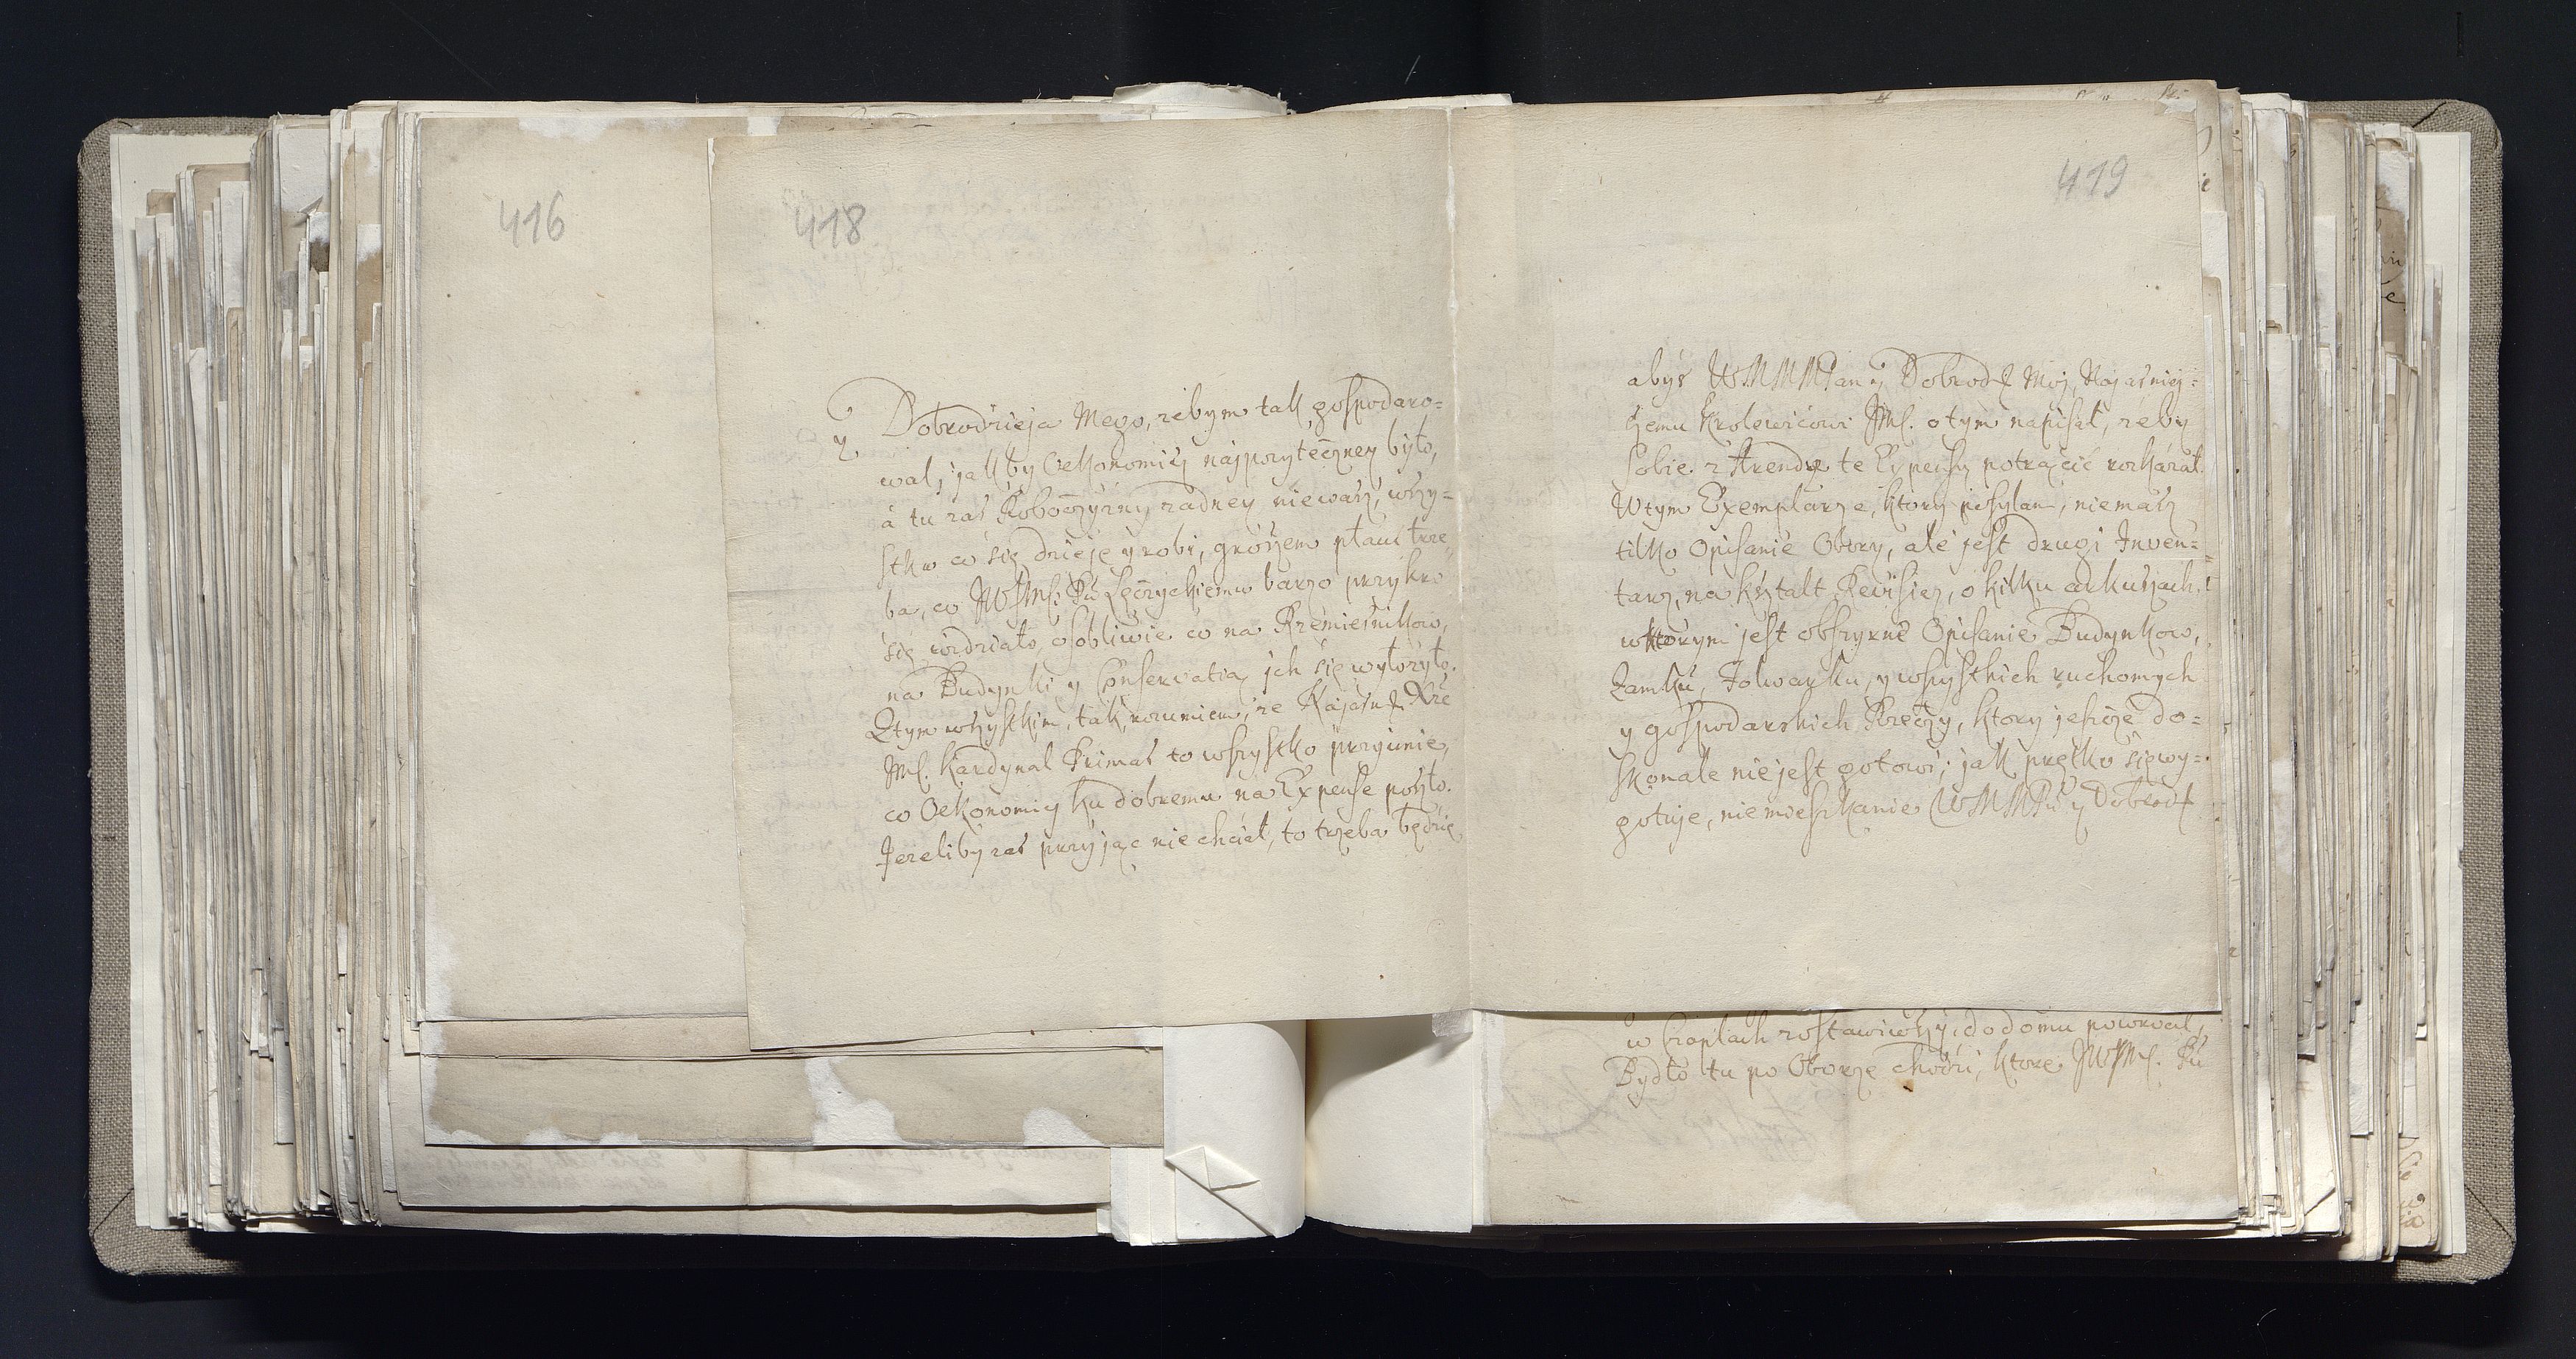 416
418
y Dobrodzieja Mego, zebym tak gospodaro=
wal, jak by Oekonomiey najpozyteczney było,
á tu zas Roboczyzny zadney niemasz, wszy=
stko co się dzieje y robi, groszem płacic trze
ba, co JWJMsci Pu Lęczyckiemu barzo przykro
się widziało, osobliwie co na Rzemiesnikow,
na Budynki y Conservatią jch się wyłozyło.
Ztym wszystkim, tak rozumiem, ze Najasn Xże
JMs. Kardynal Primas to wszystko przyimie,
co Oekonomiey ku dobremu na Expense poszło.
Jezeliby zas przyjąc nie chciał, to trzeba będzie
419
abys WMMMPan y Dobrodz Moj, Najasniey=
szemu Krolewicowi JMs. o tym napisał, zeby
sobie z Arendy te Expensy potrącić roskázał.
W tym Exemplarze, ktory posylam, niemasz
tilko Opisanie Obory, ale jest drugi Inven=
tarz, na kształt Rewisiey, o kilku arkuszach,
w ktorym jest obszyrne Opisanie Budynkow,
Zamku, Folwarku, y wszystkich ruchomych
y gospodarskich Rzeczy, ktory jeszcze do=
skonale nie jest gotowi; jak prętko się wy=
gotuje, niemieszkanie WMMPu y Dobrodz
w Czoplach zostawiwszy, do domu powrocil,
Bydło tu po Oborze chodzi, ktore JWJMs. Pu